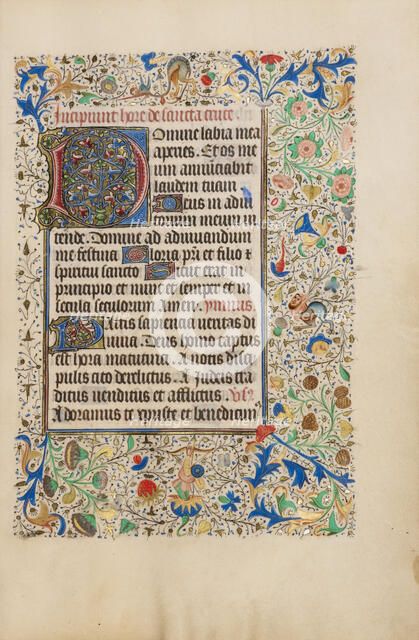 Incipiunt hore de sancta cruce
Domine labia mea
aperies. Et os me
um annuciabit
laudem tuam.
Deus in adiu
torium meum in
tende. Domine ad adiuuandum
me festina Gloria pri et filio et
spiritui sancto Sicut erat in
principio et nunc et semper et in
secula seculorum Amen. ymnus.
Patris sapiencia ueritas di
uina. Deus homo captus
est hora matutina. A notis disci
pulis cito derelictus. A Iudeis tra
ditus uenditus et afflictus. Vs.
Adoramus te xpriste et benedicim